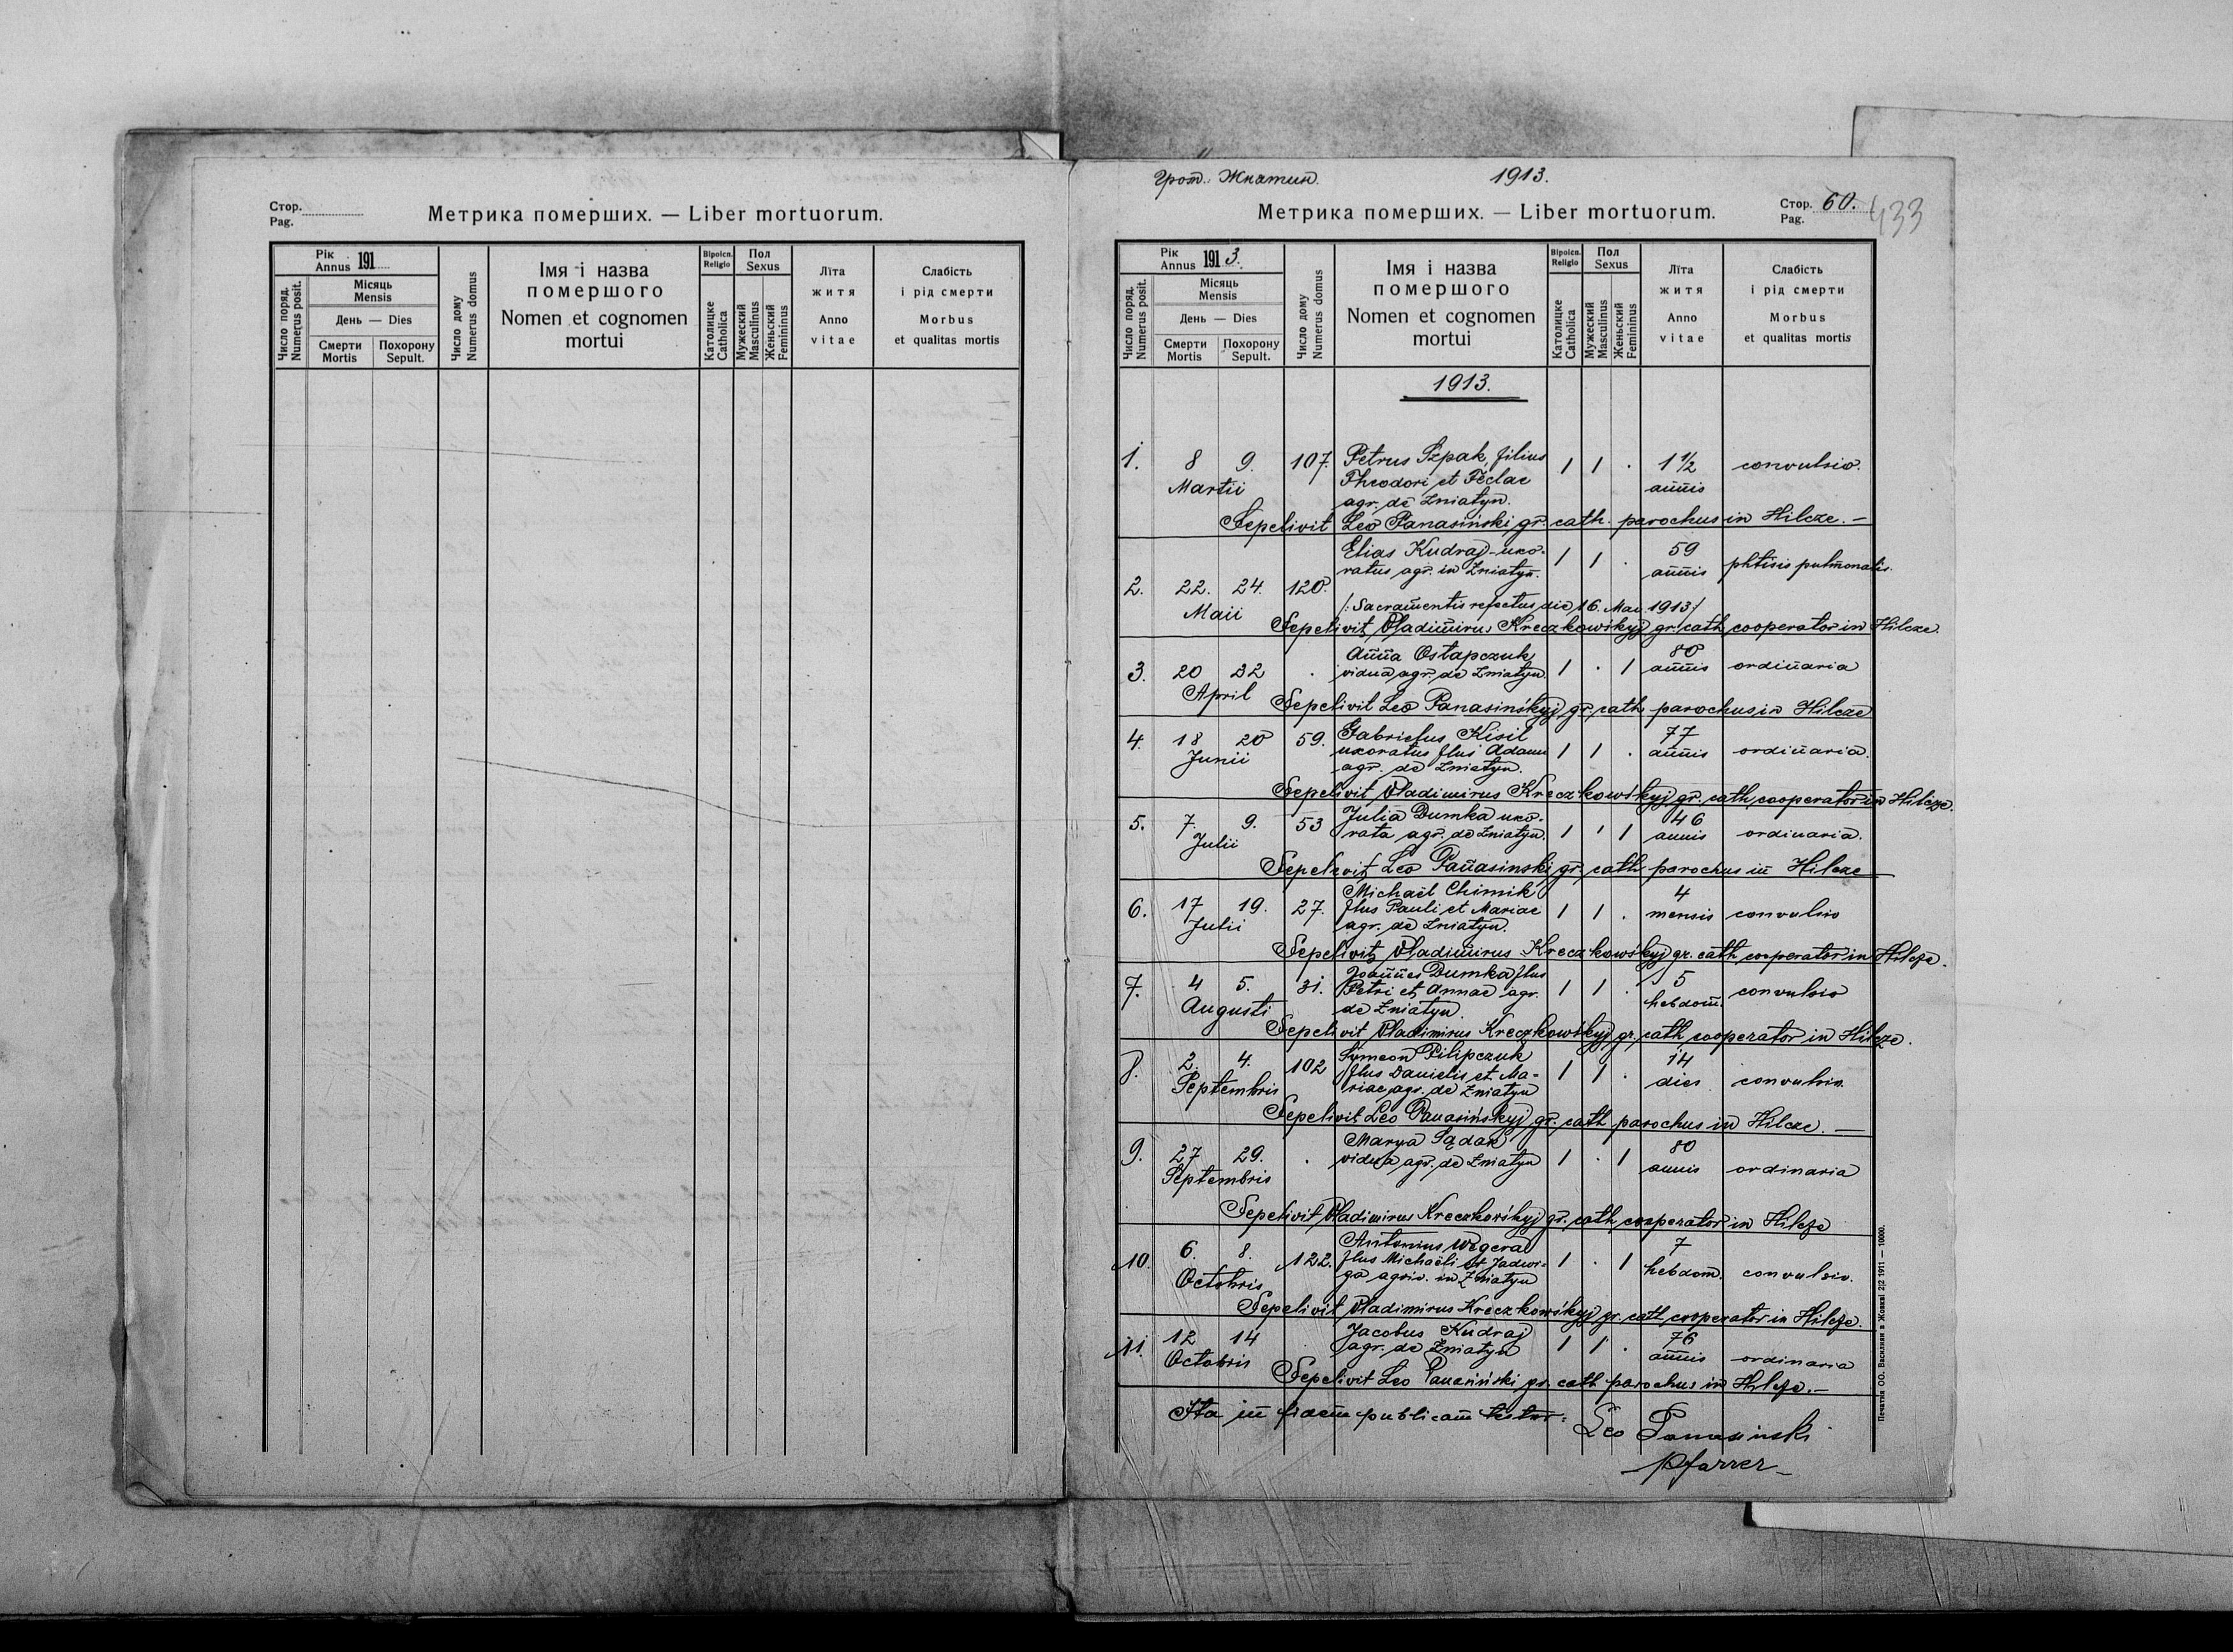 Стор.
Pag.
Метрика померших. — Liber mortuorum.
Рік
Annus 191
Число поряд.
Numerus posit.
Місяць
Mensis
День — Dies
Смерти
Mortis
Похорону
Sepult.
Число дому
Numerus domus
Імя і назва
помершого
Nomen et cognomen
mortui
Віроісп.
Religio
Католицке
Catholica
Пол
Sexus
Мужеский
Masculinus
Женьский
Femininus
Лїта
житя
Anno
vitae
Слабість
і рід смерти
Morbus
et qualitas mortis
1913.
Стор. 60.
Pag.
433
Метрика померших. — Liber mortuorum.
Рік
Annus 1913.
Число поряд.
Numerus posit.
Місяць
Mensis
День — Dies
Смерти
Mortis
Похорону
Sepult.
Число дому
Numerus domus
Імя і назва
помершого
Nomen et cognomen
mortui
Віроісп.
Religio
Католицке
Catholica
Пол
Sexus
Мужеский
Masculinus
Женьский
Femininus
Лїта
житя
Anno
vitae
Слабість
і рід смерти
Morbus
et qualitas mortis
1913.
1. 8 9. 107. Petrus Szpak, filius 1 1 . 1 1/2 convulsio.
Martii Theodori et Teclae annis
agr. de Zniatyn.
Sepelivit Leo Panasiński gr. cath. parochus in Hilcze. —
Elias Kudraj uxo- 1 1 . 59 phtisis pulmonalis.
ratus agr. in Zniatyn. annis
2. 22. 24. 120.
Maii /: Sacramentis refectus die 16. Mai 1913 :/
Sepelivit Vladimirus Kreczkowśkyj gr. cath. cooperator in Hilcze.
Anna Ostapczuk 80
3. 20 22 . vidua agr. de Zniatyn. 1 . 1 annis ordinaria
April Sepelivit Leo Panasinśkyj gr. cath. parochus in Hilcze
4. 18 20 59. Gabrielus Kisil 77
Junii uxoratus flus Adami 1 1 . annis ordinaria.
agr. de Zniatyn.
Sepelivit Vladimirus Kreczkowśkyj gr. cath. cooperator in Hilcze.
5. 7. 9. 53 Julia Dumka uxo- 46
Julii rata agr. de Zniatyn. 1 ' 1 annis ordinaria.
Sepelivit Leo Panasinski gr. cath. parochus in Hilcze
Michaël Chimik 4
6. 17 19. 27. flus Pauli et Mariae 1 1 . mensis convulsio
Julii agr. de Zniatyn.
Sepelivit Vladimirus Kreczkowśkyj gr. cath. cooperator in Hilcze.
Joannes Dumka flus 5
7. 4 5. 31. Petri et Annae agr. 1 1 . hebdom. convulsio
Augusti de Zniatyn.
Sepelivit Vladimirus Kreczkowśkyj gr. cath. cooperator in Hilcze.
Symeon Pilipczuk 14
8. 2. 4. 102 flus Danielis et Ma- 1 1 . dies convulsio.
Septembris riae agr. de Zniatyn
Sepelivit Leo Panasinśkyj gr. cath. parochus in Hilcze. —
Marya Sądak 80
9. 27 29. . vidua agr. de Zniatyn 1 . 1 annis ordinaria
Septembris
Sepelivit Vladimirus Kreczkowśkyj gr. cath. cooperator in Hilcze
Antonius Węgera 7
10. 6. 8. 122. flus Michaëli et Jadwi- 1 . 1 hebdom. convulsio.
Octobris ga agric. in Zniatyn
Sepelivit Vladimirus Kreczkowśkyj gr. cath. cooperator in Hilcze.
11. 12 14 Jacobus Kudraj 1 1 . 76
Octobris agr. de Zniatyn annis ordinaria
Sepelivit Leo Panasiński gr. cath. parochus in Hilcze. —
Ita in fidem publicam testor:
Leo Panasinski
Pfarrer
Печатня ОО. Василиян в Жовкві 2|2 1911 — 10000.